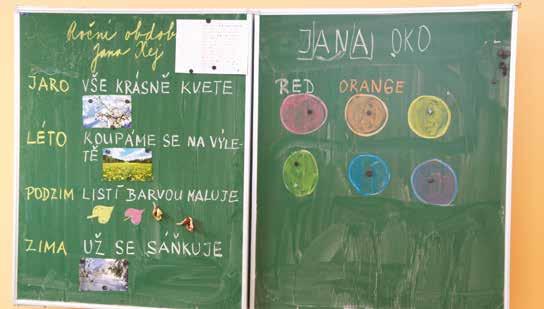 Roční obdob
Jana Kej
JARO VŠE KRÁSNĚ KVETE
LÉTO KOUPÁME SE NA VÝLE-
TĚ
PODZIM LISTÍ BARVOU MALUJE
ZIMA UŽ SE SÁŇKUJE
JANA OKO
RED ORANGE